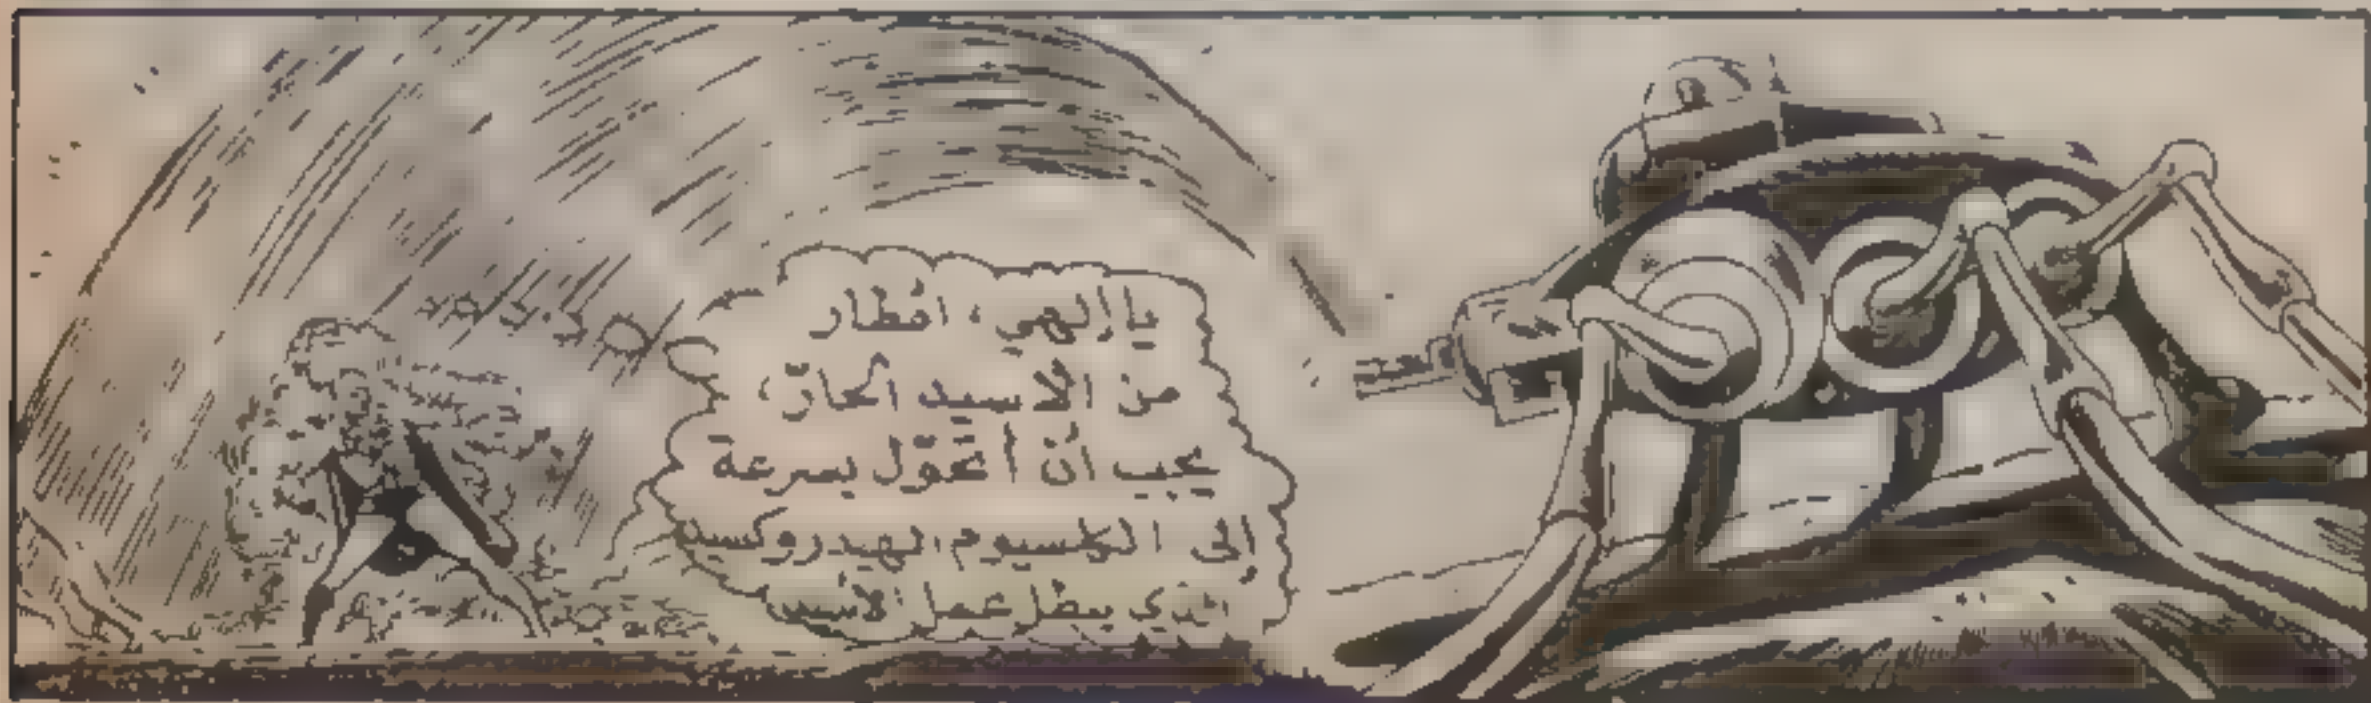 يا إلهي، امطار
من الاسيد الحارّ،
يجب ان أتحوّل بسرعة
إلى الكلسيوم الهيدروكسيد
الذي يبطل عمل الاسيد